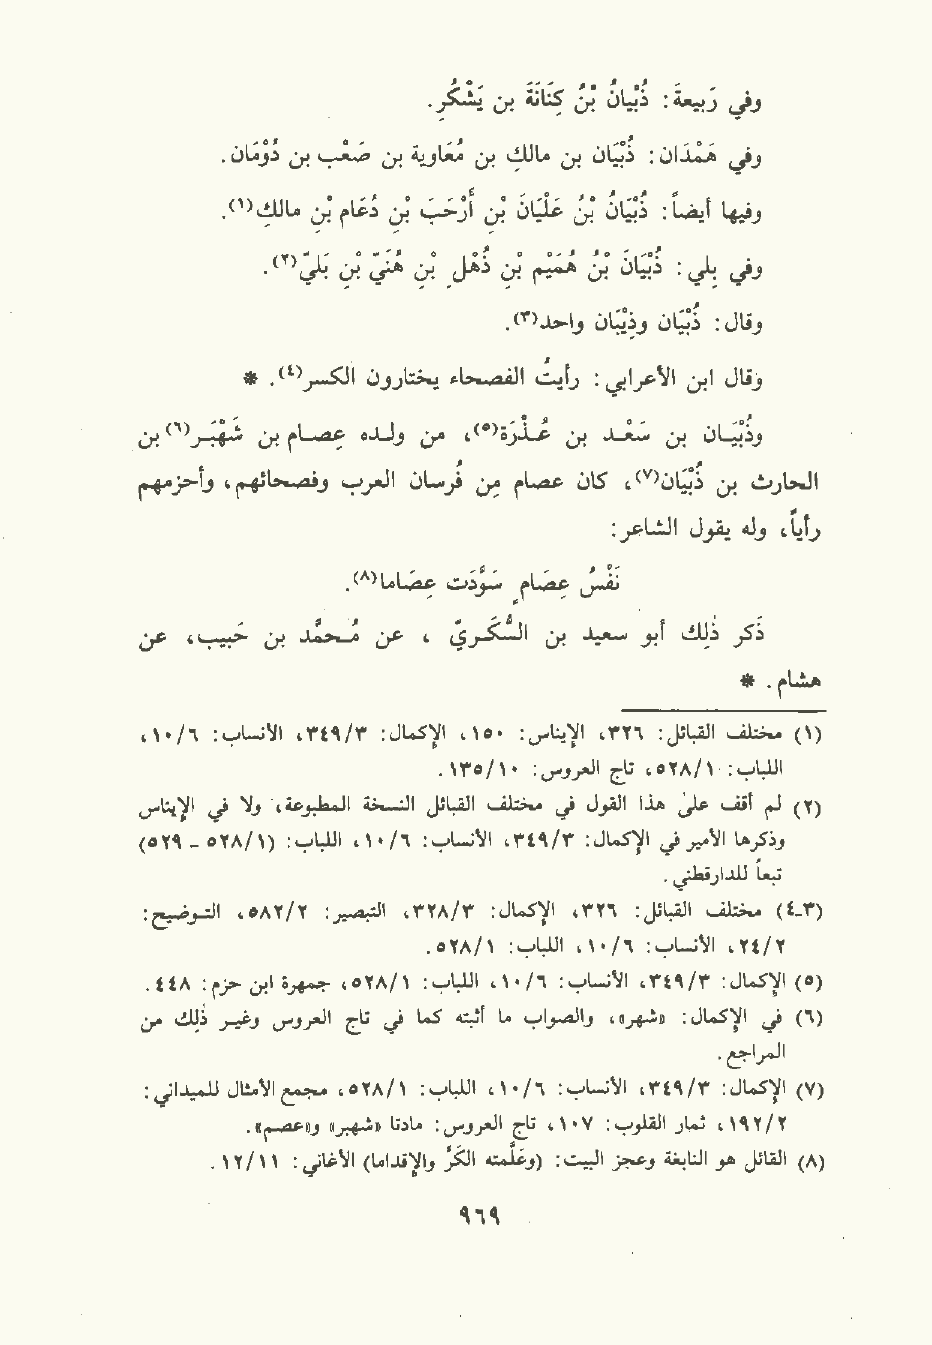 وفي رَبيعة: ذُبْيَانُ بْنُ كِنَانَةَ بن يَشْكُرِ.
وفي هَمْدَان: ذُبْيَان بن مالك بن مُعَاوية بن صَعْب بن دَوْمَان.
وفيها أيضاً: ذُبْيَانُ بْنُ عَلْيَانَ بْنِ أَرْحَبَ بْنِ دُعَام بْنِ مالكِ(١).
وفي بلِي: ذُبْيَانُ بْنُ هُمَيْم بْنِ ذُهْلِ بْنِ هُنَيّ بْنِ بَلِيّ(٢).
وقال: ذُبْيَان وذِبْيَان واحد(٣).
وقال ابن الأعرابي: رأيتُ الفصحاء يختارون الكسر(٤). *
وذُبْيَـان بن سَعْـد بن عُـذْرَة(٥)، من ولـده عِصـام بن شَهْبَـر(٦) بن
الحارث بن ذُبْيَان(٧)، كان عصام مِن فُرسان العرب وفصحائهم، وأجزمهم
رأياً، وله يقول الشاعر:
نَفْسُ عِصَامٍ سَوَّدَت عِصَاما(٨).
ذَكَر ذٰلِك أبو سعيد بن السُّكَّـريّ ، عن مُـحمَّد بن حَبيب، عن
هشام. *
(١) مختلف القبائل: ٣٢٦، الإيناس: ١٥٠، الإكمال: ٣٤٩/٣، الأنساب: ١٠/٦،
اللباب: ٥٢٨/١، تاج العروس: ١٣٥/١٠.
(٢) لم أقف على هذا القول في مختلف القبائل النسخة المطبوعة، ولا في الإيناس
وذكرها الأمير في الإكمال: ٣٤٩/٣، الأنساب: ١٠/٦، اللباب: (٥٢٨/١ - ٥٢٩)
تبعاً للدارقطني.
(٣-٤) مختلف القبائل: ٣٢٦، الإكمال: ٣٢٨/٣، التبصير: ٥٨٢/٢، التـوضيح:
٢٤/٢، الأنساب: ١٠/٦، اللباب: ٥٢٨/١.
(٥) الإكمال: ٣٤٩/٣، الأنساب: ١٠/٦، اللباب: ٥٢٨/١، جمهرة ابن حزم: ٤٤٨.
(٦) في الإكمال: «شهر»، والصواب ما أثبته كما في تاج العروس وغيـر ذلِك من
المراجع.
(٧) الإكمال: ٣٤٩/٣، الأنساب: ١٠/٦، اللباب: ٥٢٨/١، مجمع الأمثال للميداني:
١٩٢/٢، ثمار القلوب: ١٠٧، تاج العروس: مادتا «شهبر» و«عصم».
(٨) القائل هو النابغة وعجز البيت: (وعَلَّمته الكَرَّ والإقداما) الأغاني: ١٢/١١.
٩٦٩